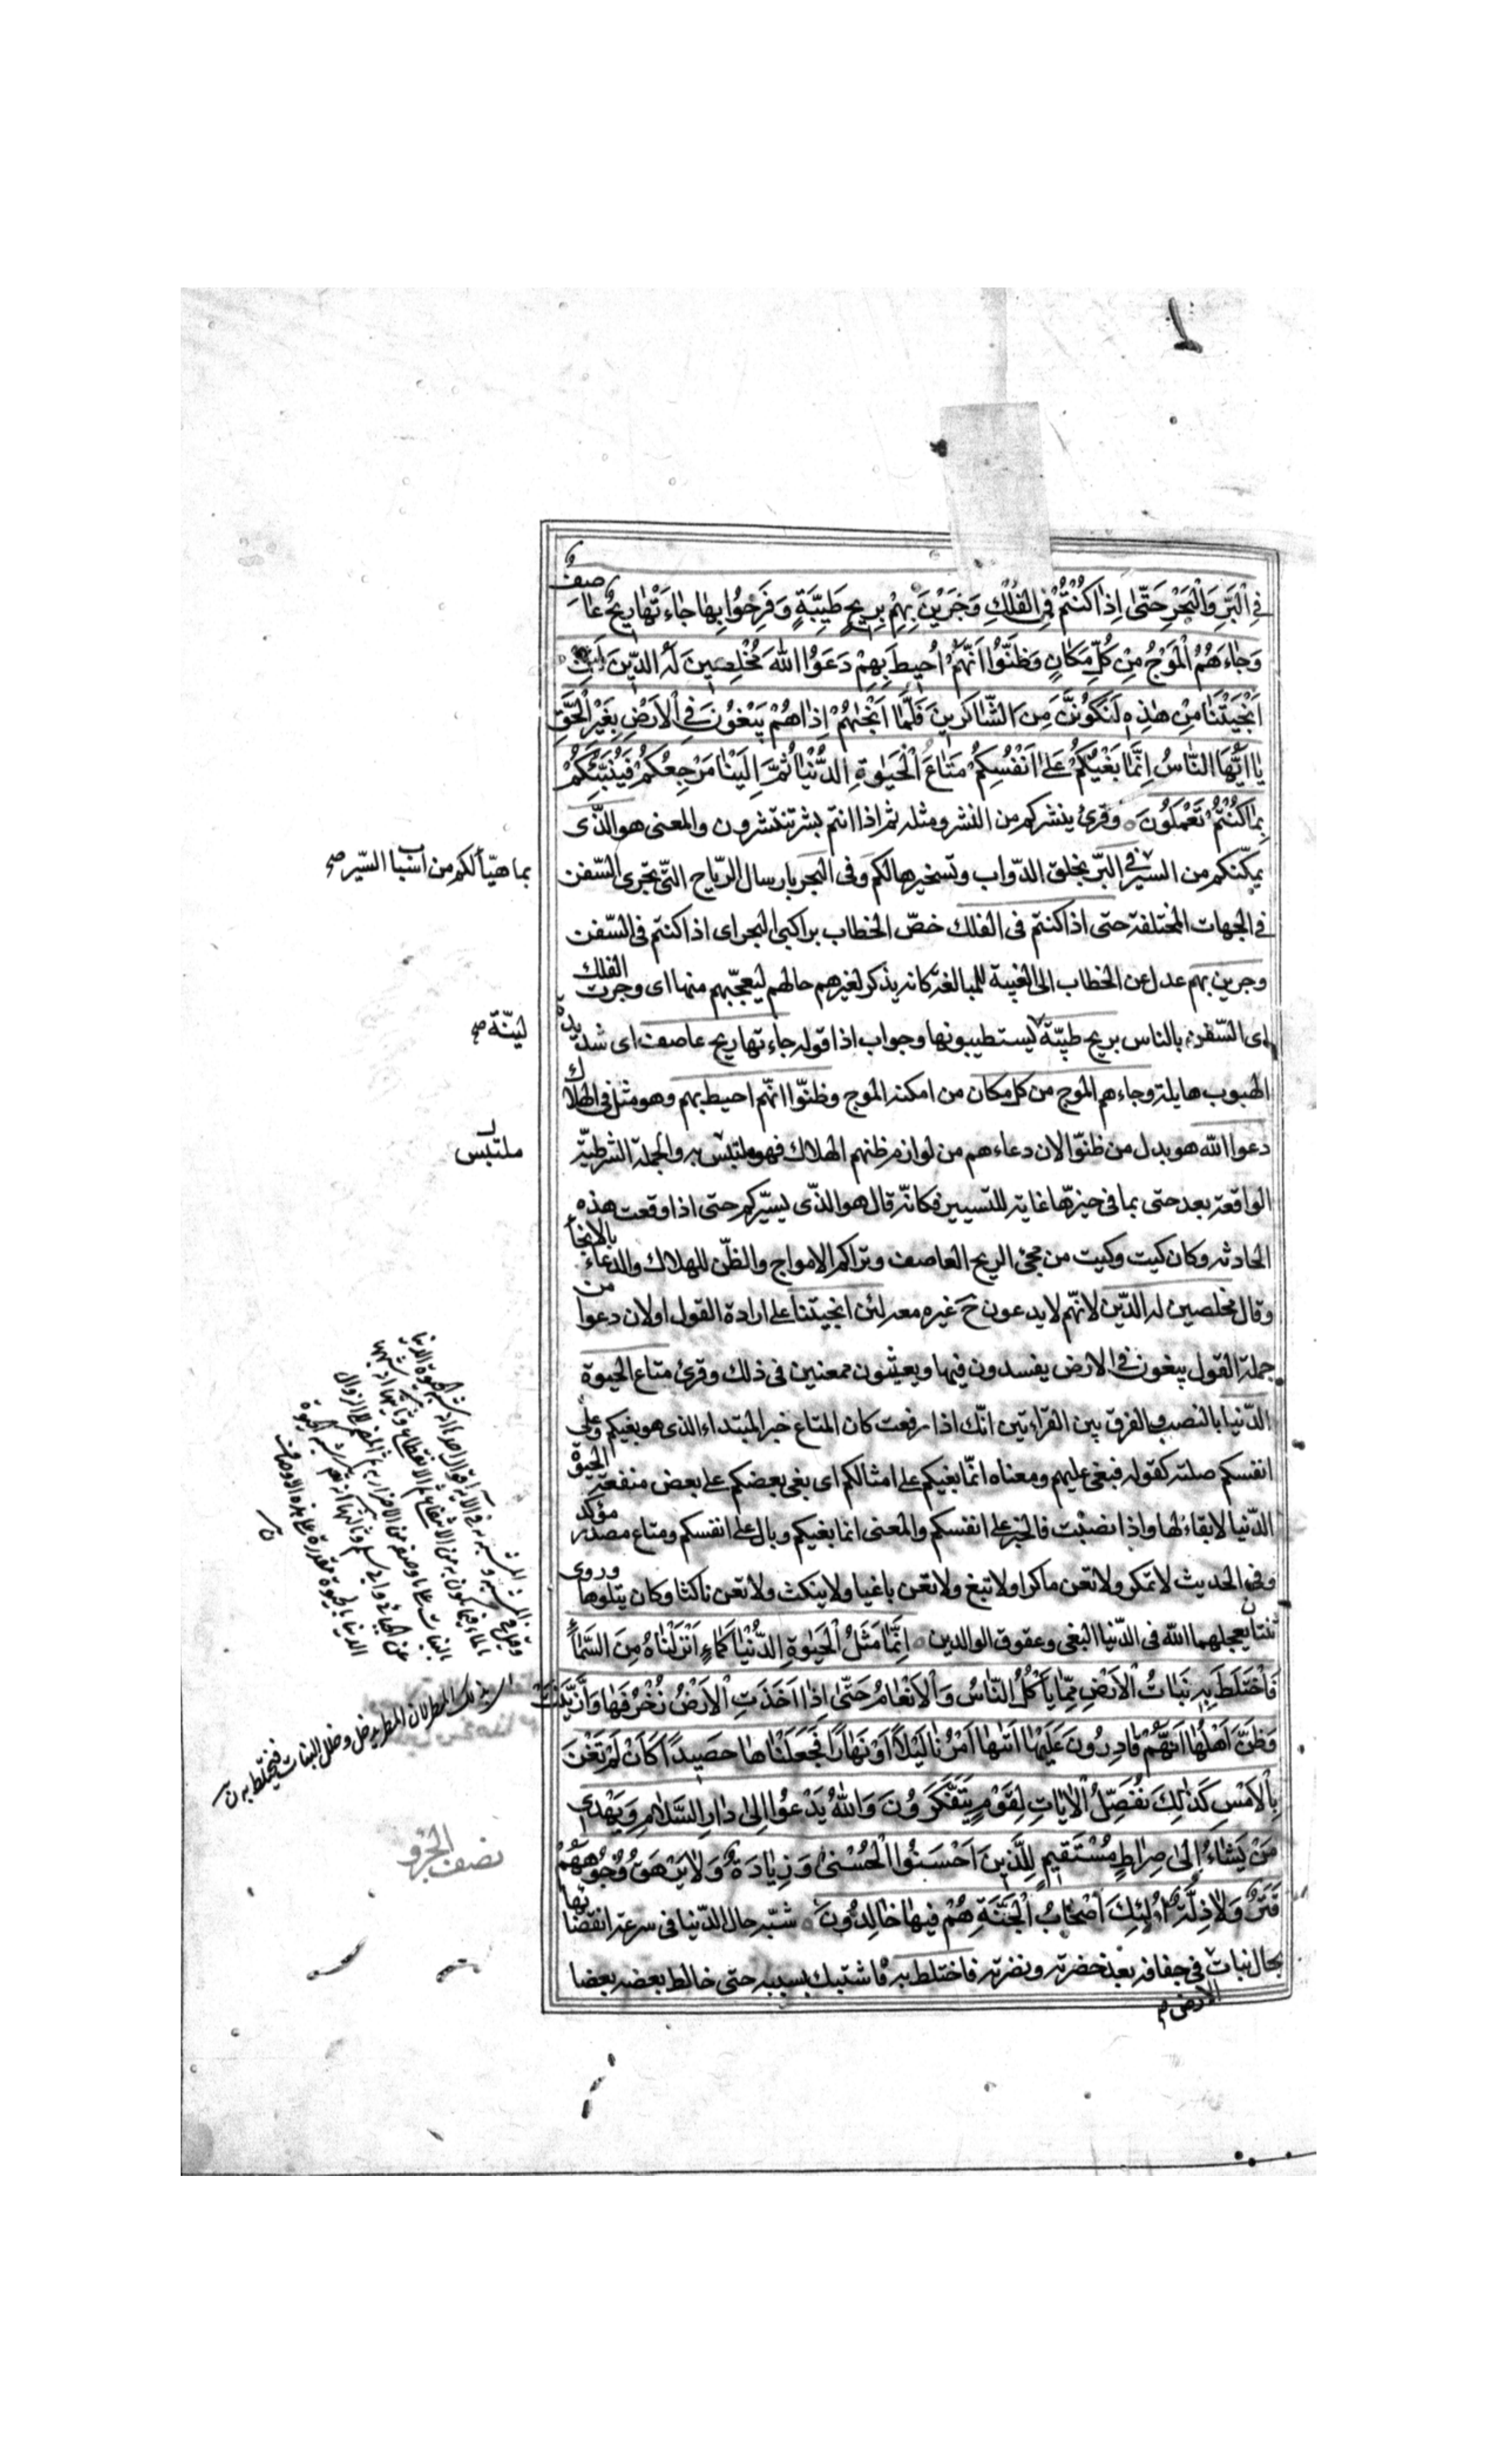 فِي الْبَرِّ وَالْبَحْرِ حَتّٰى اِذٰا كُنْتُمْ فِي الْفُلْكِ وَجَرَيْنَ بِهِمْ بِرِيحٍ طَيِّبَةٍ وَفَرِحُوا بِهٰا جٰاءَتْهٰا رِيحٌ عٰاصِفٌ
وَجٰاءَهُمُ الْمَوْجُ مِنْ كُلِّ مَكٰانٍ وَظَنُّوا اَنَّهُمْ اُحِيطَ بِهِمْ دَعَوُا اللهَ مُخْلِصِينَ لَهُ الدِّينَ لَئِنْ
اَنْجَيْتَنٰا مِنْ هٰذِهِ لَنَكُونَنَّ مِنَ الشّٰاكِرِينَ فَلَمّٰا اَنْجٰيهُمْ اِذٰا هُمْ يَبْغُونَ فِي الْاَرْضِ بِغَيْرِ الْحَقِّ
يٰا اَيُّهَا النّٰاسُ اِنَّمٰا بَغْيُكُمْ عَلىٰ اَنْفُسِكُمْ مَتٰاعَ الْحَيٰوةِ الدُّنْيٰا ثُمَّ اِلَيْنٰا مَرْجِعُكُمْ فَنُنَبِّئُكُمْ
بِمٰا كُنْتُمْ تَعْمَلُونَ وقرئ ينشركم من النشر ومثله ثم اذا انتم بشر تنتشرون والمعنى هو الذّى
يمكّنكم من السّير فى البرّ بخلق الدّواب وتسخيرها لكم وفى البحر بارسال الرّياح التّى تجرى السّفن
بما هيّأ لكم من اسباب السّير صح
فى الجهات المختلفة حتى اذا كنتم فى الفلك خصّ الخطاب براكبى البحر اى اذا كنتم فى السّفن
وجرين بهم عدل عن الخطاب الى الغيبة للمبالغة كانه يذكر لغيرهم حالهم ليعجّبهم منها اى وجرت الفلك
اى السّفن بالناس بريح طيّبة يستطيبونها وجواب اذا قوله جاءتها ريح عاصف اى شديدة
ليّنة صح
الهبوب هايلة وجاءهم الموج من كل مكان من امكنة الموج وظنّوا انّهم احيط بهم وهو مثل فى الهلاك
دعوا الله هو بدل من ظنّوا لان دعاءهم من لوازم ظنهم الهلاك فهو ملتبس به والجملة الشرطيّة
ملتبس
الواقعة بعد حتى بما فى حيّزها غاية للتسيير فكانّه قال هو الذّى يسيّركم حتى اذا وقعت هذه
الحادثة وكان كيت وكيت من مجئ الريح العاصف وتراكم الامواج والظّن للهلاك والدعاء بالانجاء
وقال مخلصين له الدّين لانّهم لا يدعون ح غيره معه لئن انجيتنا على ارادة القول او لان دعوا من
جملة القول يبغون فى الارض يفسدون فيها ويعيثون ممعنين فى ذلك وقرئ متاع الحيوة
الدّنيا بالنصب والفرق بين القراءتين انّك اذا رفعت كان المتاع خبر المبتداء الذى هو بغيكم وعلى
انفسكم صلته كقوله فبغى عليهم ومعناه انّما بغيكم على امثالكم اى بغى بعضكم على بعض منفعة الحيوة
الدّنيا لا بقاء لها واذا نصبت فالخبر على انفسكم والمعنى انما بغيكم وبال على انفسكم ومتاع مصدر مؤكد
وفى الحديث لا تمكر ولا تعن ماكرا ولا تبغ ولا تعن باغيا ولا ينكث ولا تعن ناكثا وكان يتلوها وروى
ثنتان يعجلهما الله فى الدّنيا البغى وعقوق الوالدين اِنَّمٰا مَثَلُ الْحَيٰوةِ الدُّنْيٰا كَمٰاءٍ اَنْزَلْنٰاهُ مِنَ السَّمٰاءِ
فَاخْتَلَطَ بِهِ نَبٰاتُ الْاَرْضِ مِمّٰا يَأْكُلُ النّٰاسُ وَالْاَنْعٰامُ حَتّٰى اِذٰا اَخَذَتِ الْاَرْضُ زُخْرُفَهٰا وَازَّيَّنَتْ
وَظَنَّ اَهْلُهٰا اَنَّهُمْ قٰادِرُونَ عَلَيْهٰا اَتٰيهٰا اَمْرُنٰا لَيْلًا اَوْ نَهٰارًا فَجَعَلْنٰاهٰا حَصِيدًا كَاَنْ لَمْ تَغْنَ
بِالْاَمْسِ كَذٰلِكَ نُفَصِّلُ الْاٰيٰاتِ لِقَوْمٍ يَتَفَكَّرُونَ وَاللهُ يَدْعُوا اِلىٰ دٰارِ السَّلٰامِ وَيَهْدِي
مَنْ يَشٰاءُ اِلىٰ صِرٰاطٍ مُسْتَقِيمٍ لِلَّذِينَ اَحْسَنُوا الْحُسْنىٰ وَزِيٰادَةٌ وَلٰا يَرْهَقُ وُجُوهَهُمْ
نصف الجزو
قَتَرٌ وَلٰا ذِلَّةٌ اُولٰئِكَ اَصْحٰابُ الْجَنَّةِ هُمْ فِيهٰا خٰالِدُونَ شبّه حال الدّنيا فى سرعة انقضائها
بحال نبات فى جفافه بعد خضرته ونضرته فاختلط به فاشتبك بسببه حتى خالط بعضه بعضا
الارض م